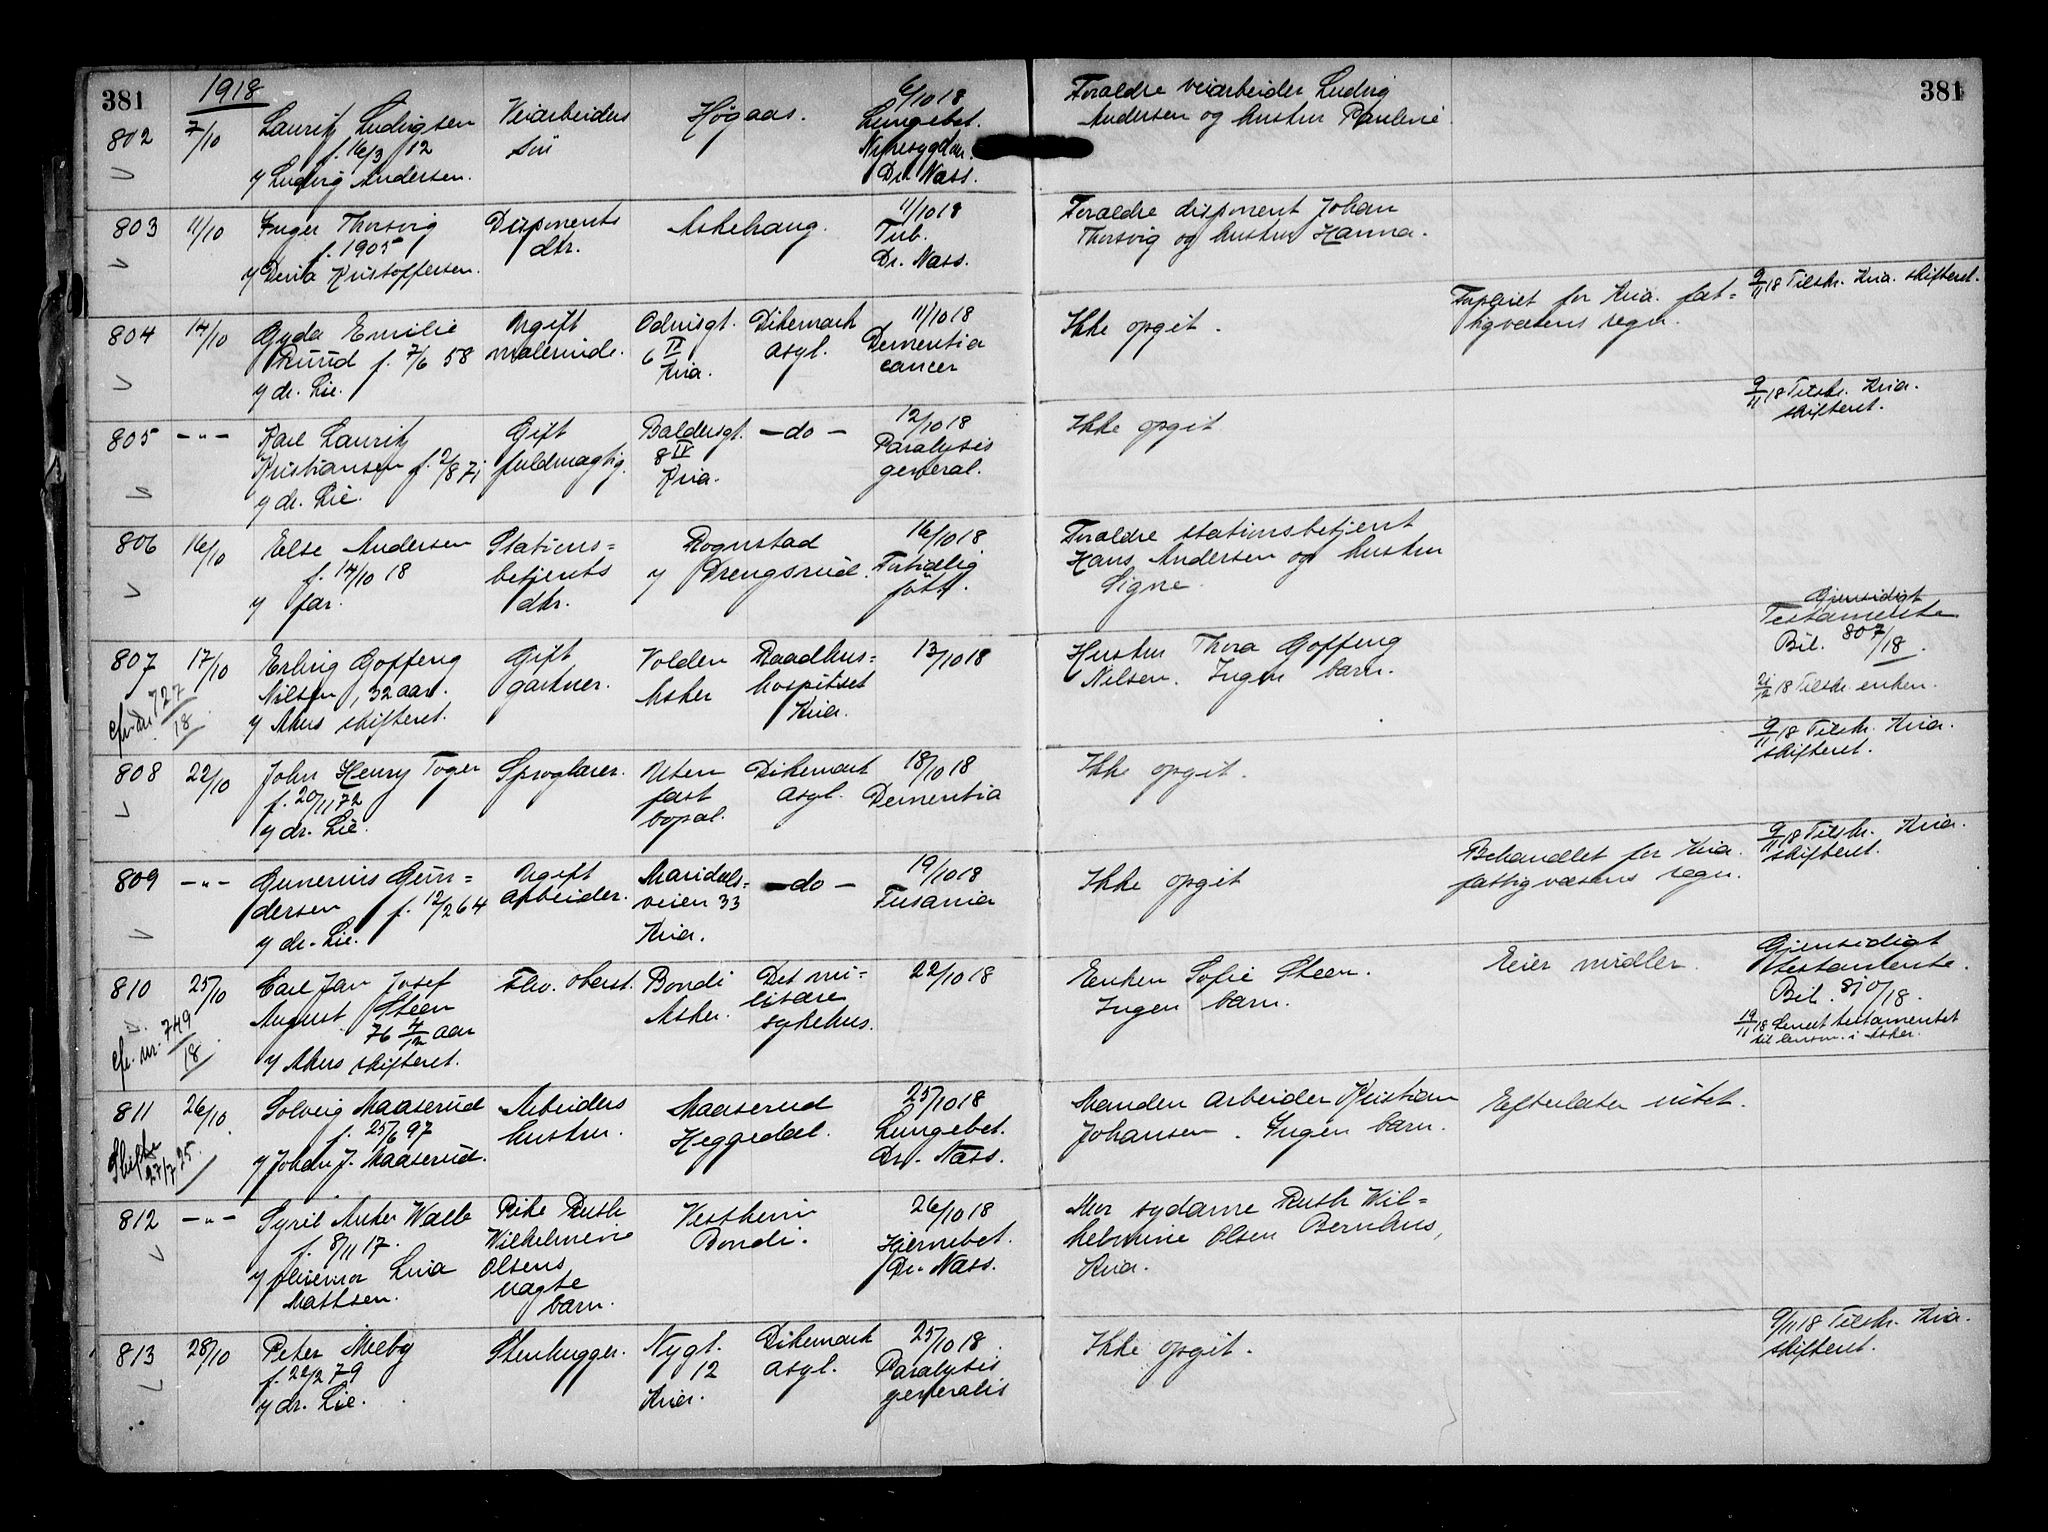 381
1918
381
802
7/10
Lauritz Ludvigsen
f. 16/3 12
v/ Ludvig Andersen.
Veiarbeiders
søn
Høgaas.
6/10 18
Lungebet.
Nyresygdom.
Dr. Næss.
Foraldre veiarbeider Ludvig
Andersen og hustru Pauline
803
11/10
Inger Thorsvig
f. 1905
v/ Kristoffersen.
Disponents
dtr.
Askehaug.
11/10 18
Tub.
Dr. Næss.
Foraldre disponent Johan
Thorsvig og hustru Hanna.
804
14/10
Gyda Emilie
Ruud f. 7/6 58
v/ dr. Lie.
Ugift
malerinde.
Odinsgt.
6 II
Kria.
Dikemark
asyl.
11/10 18
Dementia
cancer
Ikke opgit.
Forpleiet for Kria. fat=
tigvæsens regn.
9/11 18 Tilskr. Kria. skifteret.
805
-"-
Karl Lauritz
Kristiansen f. 2/8 71
v/ dr. Lie.
Gift
fuldmægtig.
Baldersgt.
8 IV
Kria.
-do-
12/10 18
Paralysis
general.
Ikke opgit
9/11 18 Tilskr. Kria.
skifteret.
806
16/10
Else Andersen
f. 14/10 18
v/ far.
Stations=
betjents
dtr.
Rognstad
v/ Drengsrud.
16/10 18
Fortidlig
født.
Foraldre stationsbetjent
Hans Andersen og hustru
Signe.
807
17/10
Erling Goffeng
Nilsen, 32 aar.
v/ Akers skifteret.
cfr. nr. 727/18
Gift
gartner.
Volden
Asker
Raadhus=
hospitset
Kria.
13/10 18
Hustru Thora Goffeng
Nilsen. Ingen barn.
Gjensidigt
Testamente
Bil. 807/18.
21/12 18 Tilskr. enken.
808
22/10
John Henry Toger
f. 20/11 72
v/ dr. Lie.
Sproglærer.
Uten
fast
bopæl.
Dikemark
asyl.
18/10 18
Dementia
Ikke opgit.
9/11 18 Tilskr. Kria.
skifteret.
809
-"-
Gunerius Gun=
dersen f. 12/2 64
v/ dr. Lie.
Ugift
arbeider.
Maridals=
veien 33
Kria.
-do-
19/10 18
Ikke opgit
Behandlet for Kria.
fattigvæsens regn.
9/11 18 Tilskr. Kria.
skifteret.
810
25/10
Carl Jan Josef
August Steen
76 4/12 aar
v/ Akers skifteret.
cfr. nr. 749/18
Fhv. oberst.
Bondi
Asker.
Det mi=
litære
sykehus.
22/10 18
Enken Sofie Steen.
Ingen barn.
Eier midler.
Gjensidigt
testamente.
Bil. 810/18.
19/11 18 Sendt testamentet
til lensm. i Asker.
811
26/10
Solveig Maaserud
f. 25/6 97
v/ Johan J. Maaserud.
Skifte
27/7 25.
Arbeiders
hustru.
Maaserud
Heggedal.
25/10 18
Lungebet.
Dr. Næss.
Manden arbeider Kristian
Johansen. Ingen barn.
Efterlater intet.
812
-"-
Syril Anker Walle
f. 8/11 17.
v/ pleiemor Lina
Mathsen.
Pike Ruth
Wilhelmine
Olsens
uægte
barn.
Vestheim
Bondi.
26/10 18
Hjernebet.
Dr. Næss.
Mor sydame Ruth Wil=
helmine Olsen Bernhus,
Kria.
813
28/10
Peter Mieby
f. 22/2 79
v/ dr. Lie.
Stenhugger.
Nygt.
12
Kria.
Dikemark
asyl.
25/10 18
Paralysis
generalis
Ikke opgit.
9/11 18 Tilskr. Kria.
skifteret.